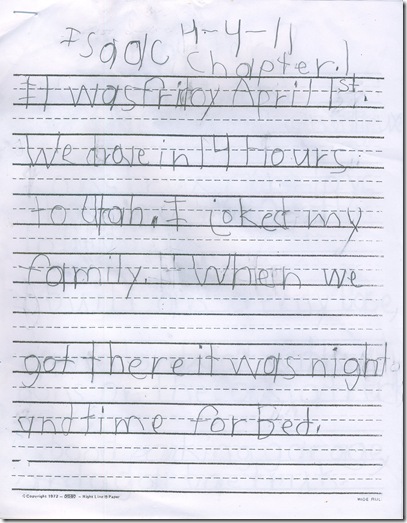 Isaac 4-4-11
Chapter.1
It was friday April 1st.
We drove in 14 Hours
to Utah. I joked my
family. When we
got there it was night
and time for bed.
©Copyright 1972 - Right Line ® Paper WIDE RUL